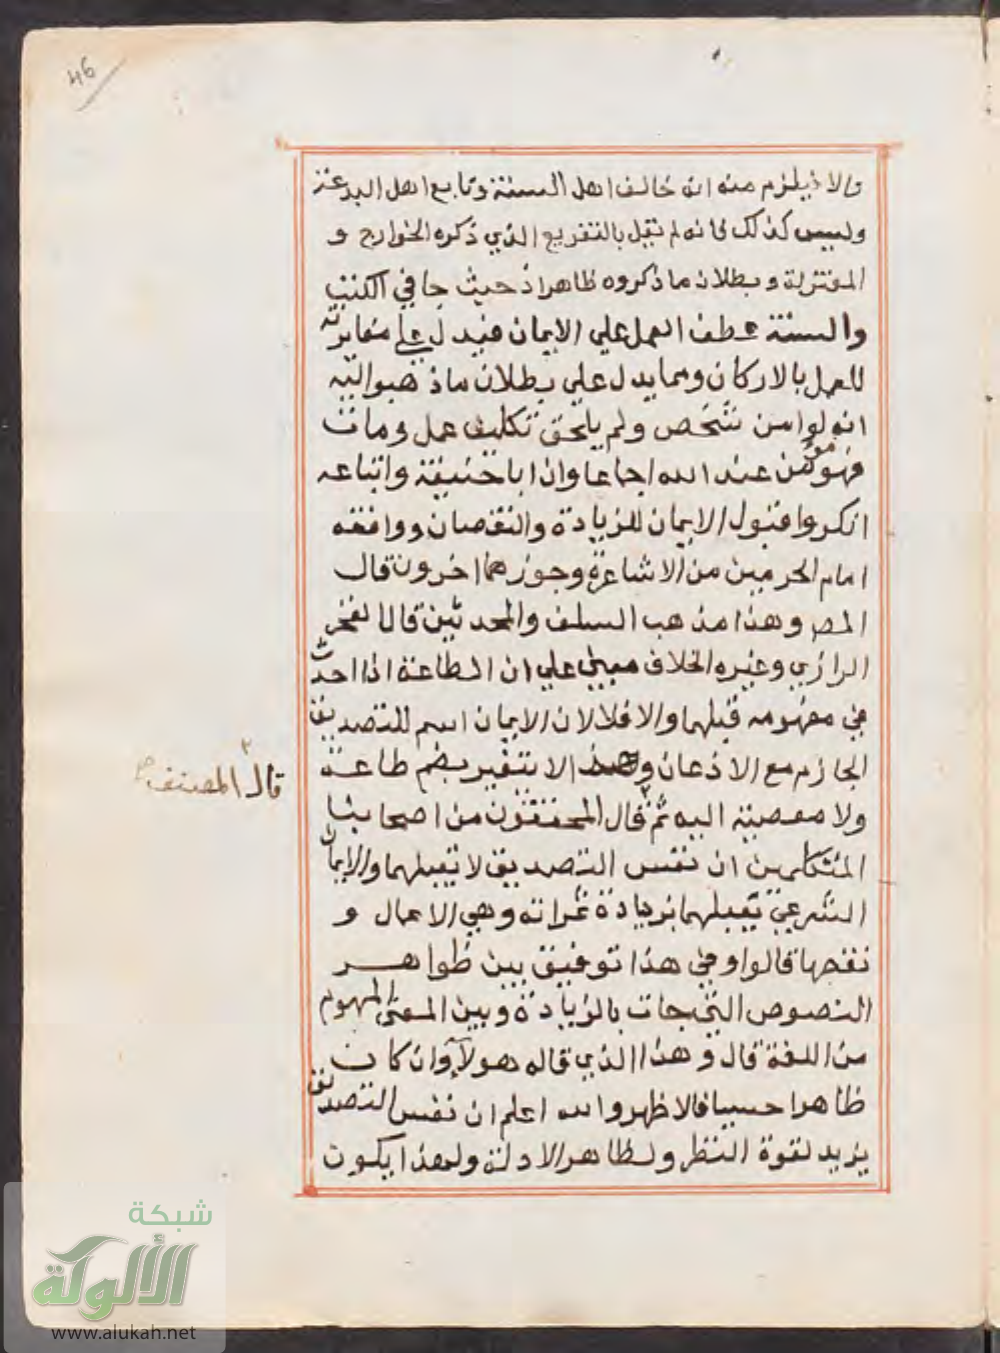 46
والا فيلزم منه انه خالف اهل السنة وتابع اهل البدعة
وليس كذلك فانه لم يقل بالتفريع الذي ذكره الخوارج و
المعتزلة وبطلان ما ذكروه ظاهر اذ حيث جا في الكتب
والسنة عطف العمل علي الايمان فيدل علي مغايرته
للعمل بالاركان ومما يدل علي بطلان ما ذهبوا اليه
انه لو امن شخص ولم يلحق تكليف عمل ومات
فهو مومن عند الله اجماعا وان ابا حنيفة واتباعه
انكروا قبول الايمان للزيادة والنقصان ووافقه
امام الحرمين من الاشاعرة وجوزهما اخرون قال
المص وهذا مذهب السلف والمحدثين قال الفخر
الرازي وغيره الخلاف مبني علي ان الطاعة اذا اخذت
في مفهومه قبلهما والا فلا لان الايمان اسم للتصديق
الجازم مع الاذعان وهذا لا يتغير بضم طاعة
ولا معصية اليه ثم قال المحققون من اصحابنا
المتكلمين ان نفس التصديق لا يقبلهما والايمان
الشرعي يقبلهما بزيادة ثمراته وهي الاعمال و
نقصها قالوا وفي هذا توفيق بين ظواهر
النصوص التي جات بالزيادة وبين المعني المفهوم
من اللغة قال وهذا الذي قاله هولاء وان كان
ظاهرا حسنا فالاظهر والله اعلم ان نفس التصديق
يزيد لقوة النظر ولظاهر الادلة ولهذا يكون
قال المصنف صح
شبكة
الألوكة
www.alukah.net